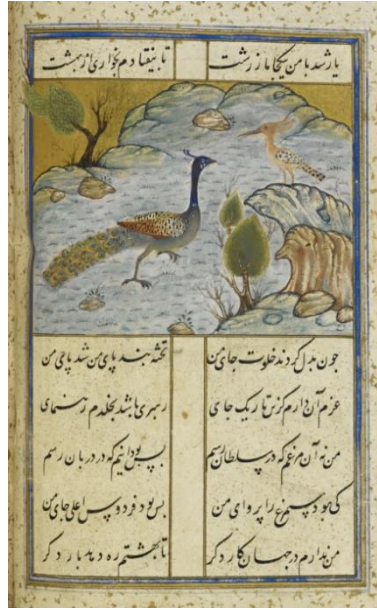 یار شد با من بیکجا مار زشت تا بیفتادم بخواری از بهشت
جون بدل کردند خلوت جای من تخته بند پای من شد پای من
عزم آن دارم کزین تاریک جای رهبری باشد بخلدم رهنمای
من نه آن مرغم که در سلطان رسم بس بود اینم که در دربان رسم
کی بود سیمرغ را پروای من بس بود فردوس اعلی جای من
من ندارم در جهان کار دکر تا بهشتم ره دهد بار دکر